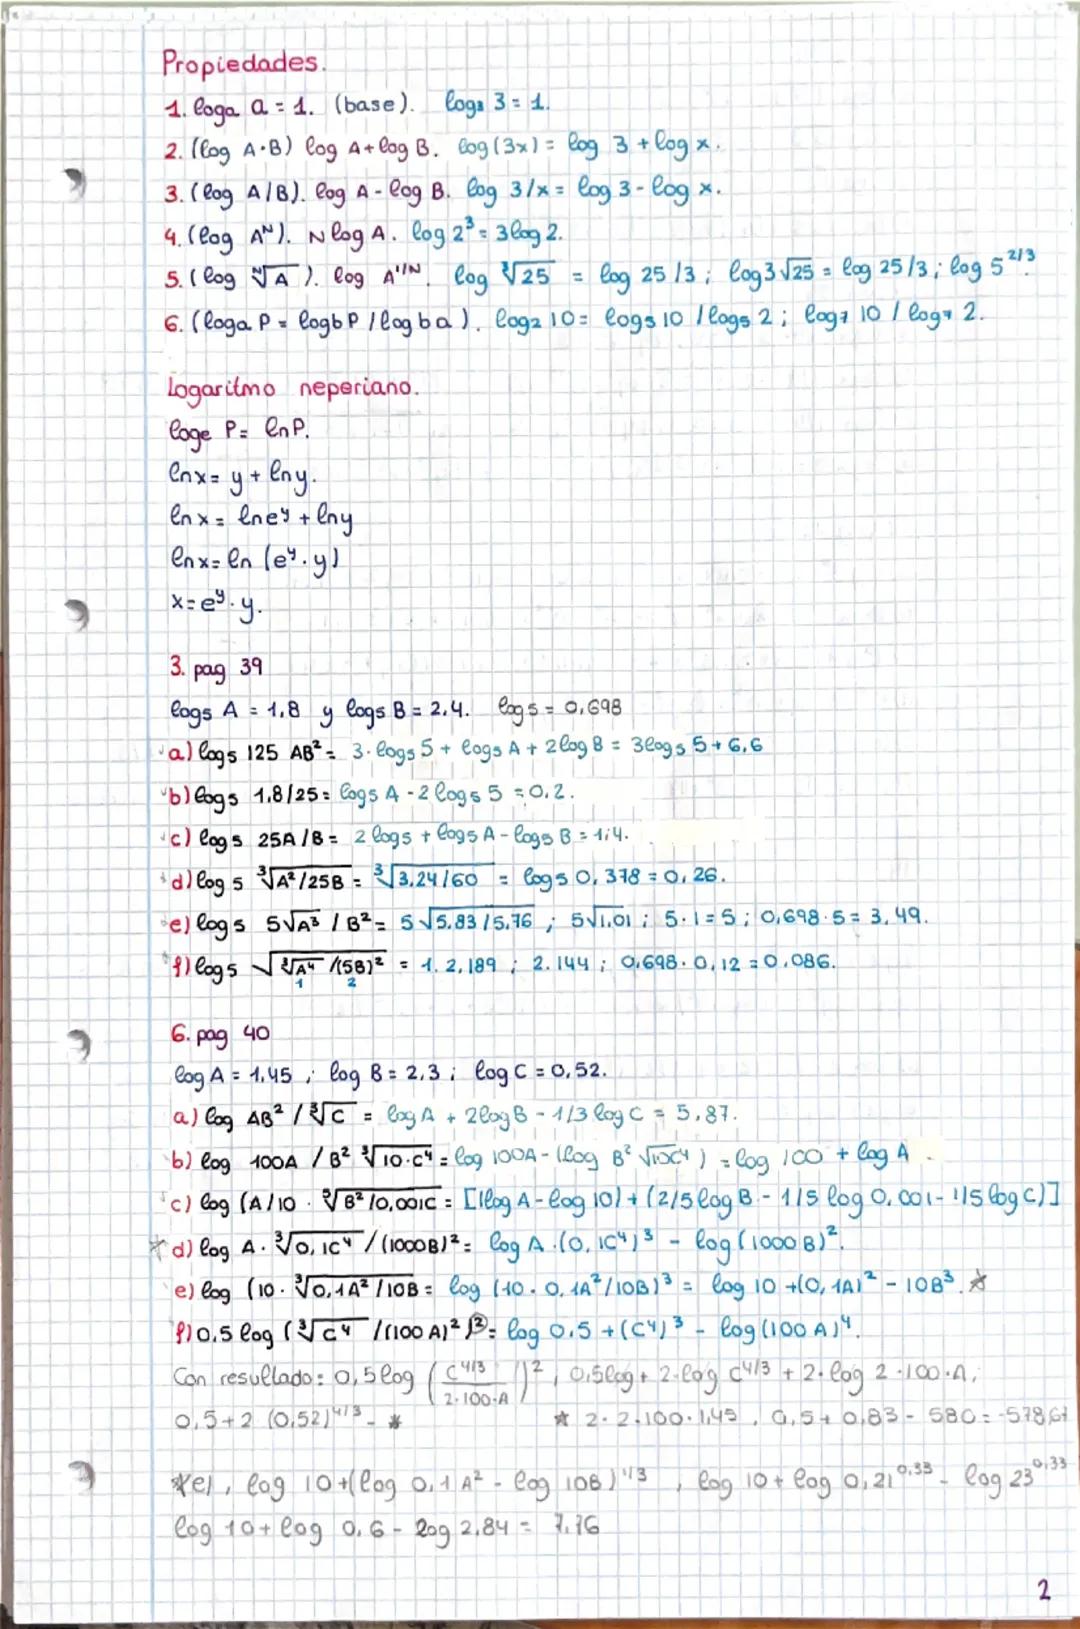 Propiedades.
1. loga a = 1. (base). log3 3 = 1.
2. (log A·B) log A + log B. log (3x) = log 3 + log x.
3. (log A/B). log A - log B. log 3/x = log 3 - log x.
4. (log Aᴺ). N log A. log 2³ = 3 log 2.
5. (log ᴺ√A). log A^1/N. log ³√25 = log 25/3; log 3√25 = log 25/3; log 5^2/3.
6. (loga P = logb P / log b a). log2 10 = log5 10 / log5 2; log7 10 / log7 2.
Logaritmo neperiano.
loge P = ln P.
ln x = y + ln y.
ln x = ln e^y + ln y
ln x = ln (e^y · y)
x = e^y · y.
3. pag 39
log5 A = 1,8 y log5 B = 2,4. log 5 = 0,698
a) log5 125 AB² = 3·log5 5 + log5 A + 2 log B = 3 log5 5 + 6,6
b) log5 1,8/25 = log5 A - 2 log5 5 = 0,2.
c) log5 25A/B = 2 log5 + log5 A - log5 B = 1,4.
d) log5 ³√A²/25B = ³√3,24/60 = log5 0,378 = 0,26.
e) log5 5√A³ / B² = 5√5,83/5,76 ; 5√1,01 ; 5·1 = 5 ; 0,698·5 = 3,49.
f) log5 √³√A⁴ /(5B)² = 1. 2,189 ; 2. 144 ; 0,698·0,12 = 0,086.
1 2
6. pag 40
log A = 1,45 ; log B = 2,3 ; log C = 0,52.
a) log AB² / ³√C = log A + 2 log B - 1/3 log C = 5,87.
b) log 100A / B² ³√10·C⁴ = log 100A - (log B² √10C⁴) = log 100 + log A -
c) log (A/10 · ⁵√B²/0,001C = [(log A - log 10) + (2/5 log B - 1/5 log 0,001 - 1/5 log C)]
* d) log A · ³√0,1C⁴ / (1000B)² = log A · (0,1C⁴)³ - log (1000B)².
e) log (10 · ³√0,1A²/10B = log (10 · 0,1A²/10B)³ = log 10 + (0,1A)² - 10B³. *
f) 0,5 log (³√C⁴ /(100 A)²)² = log 0,5 + (C⁴)³ - log (100 A)⁴.
Con resultado: 0,5 log (C^4/3 / 2·100·A)² , 0,5 log + 2·log C^4/3 + 2·log 2·100·A,
0,5 + 2 (0,52)^4/3 - * * 2·2·100·1,45 , 0,5 + 0,83 - 580 = -578,67
*e), log 10 + (log 0,1 A² - log 10B)^1/3 , log 10 + log 0,21^0,33 - log 23^0,33
log 10 + log 0,6 - log 2,84 = 7,76
2